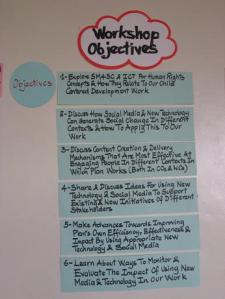 Workshop
Objectives
Objectives
1- Explore SM4SC & ICT For Human Rights
Concepts & How They Relate To Our Child
Centered Development Work
2- Discuss How Social Media & New Technology
Can Generate Social Change In Different
Contexts & How To Apply This To Our
Work
3- Discuss Content Creation & Delivery
Mechanisms That Are Most Effective At
Engaging People In Different Contexts In
Which Plan Works (Both In COs & NOs)
4- Share & Discuss Ideas For Using New
Technology & Social Media To Support
Existing & New Initiatives Of Different
Stakeholders
5- Make Advances Towards Improving
Plan's Own Efficiency, Effectiveness &
Impact By Using Appropriate New
Technology & Social Media
6- Learn About Ways To Monitor &
Evaluate The Impact Of Using New
Media & Technology In Our Work